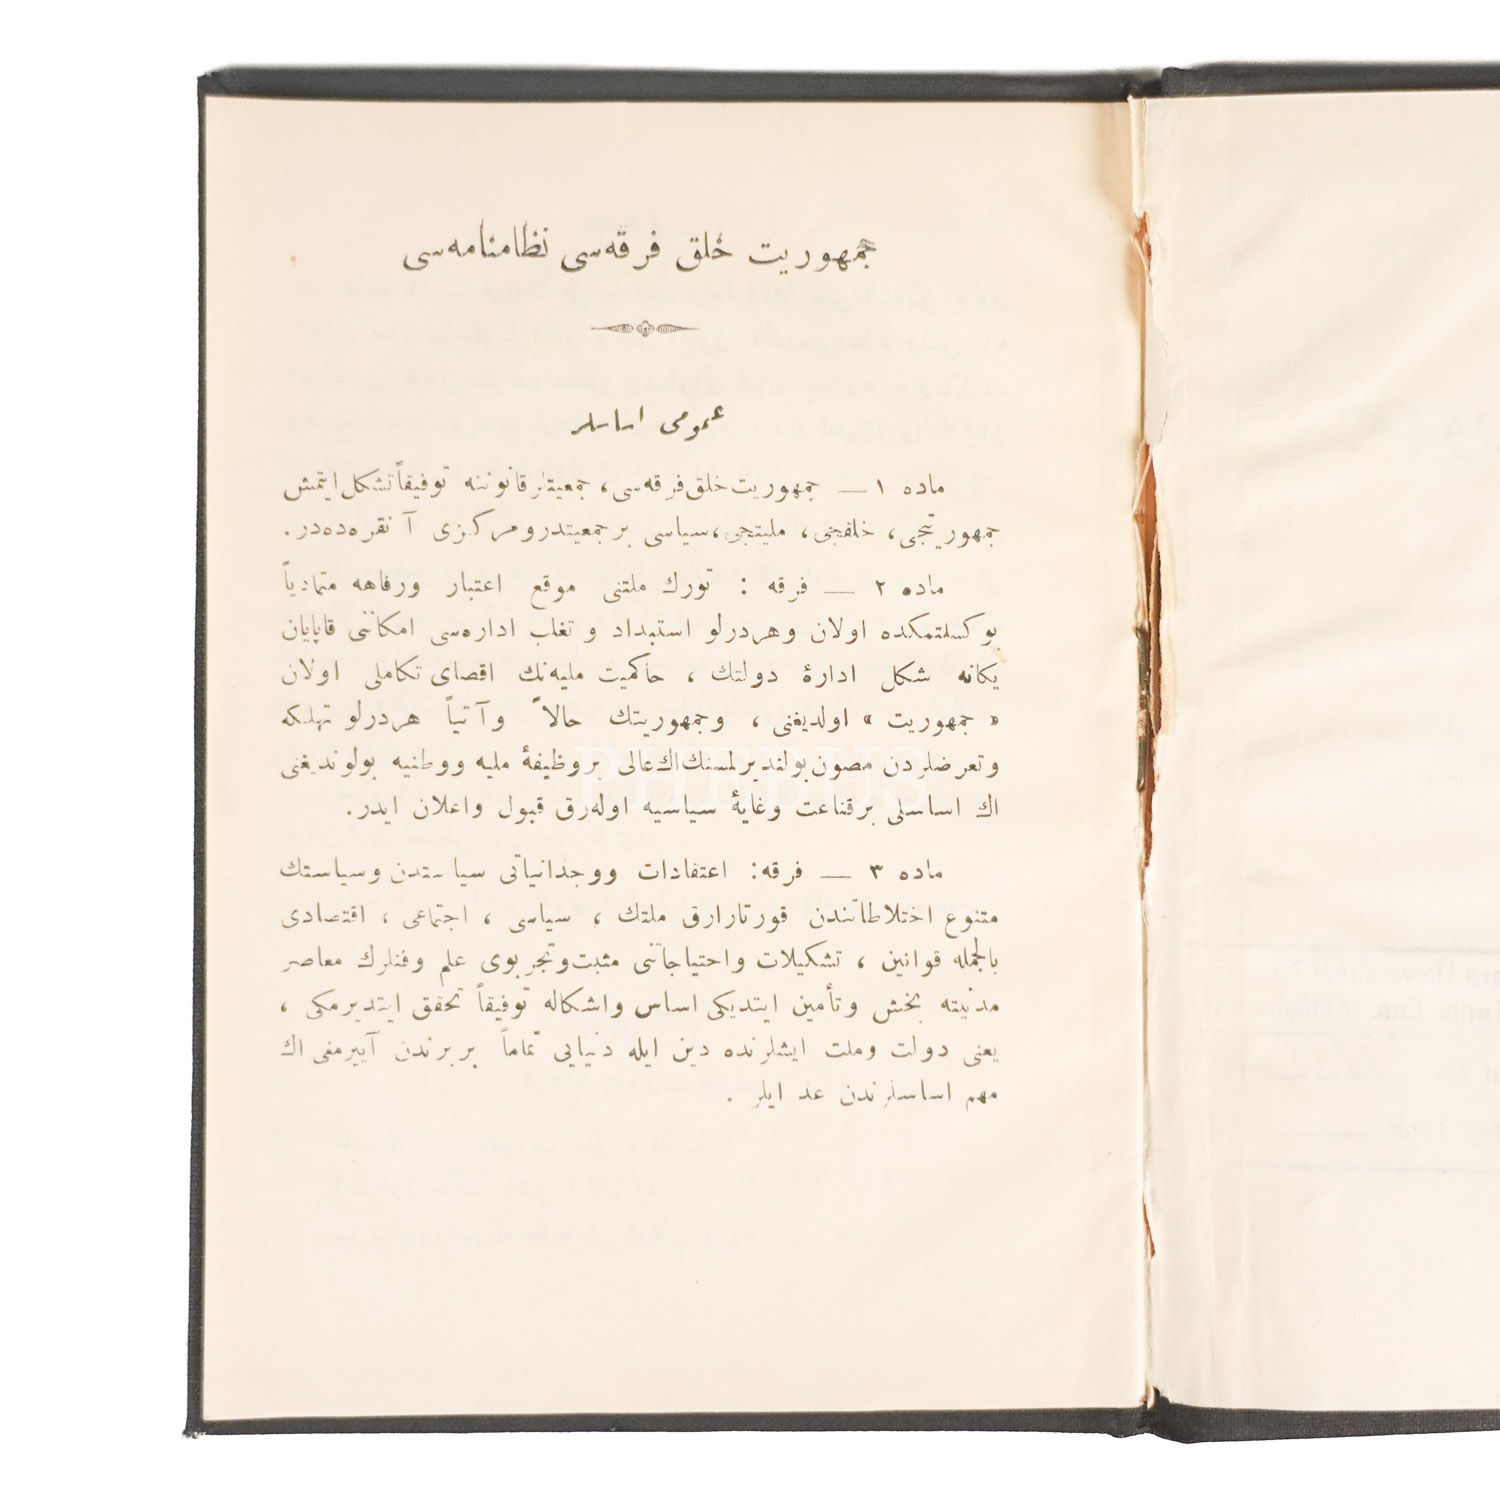 جمهوریت خلق فرقه‌سی نظامنامه‌سی
عمومی اساسلر
ماده ۱ — جمهوریت خلق فرقه‌سی، جمعیتلر قانوننه توفیقاً تشکل ایتمش
جمهوریتجی، خلقجی، ملیتجی، سیاسی بر جمعیتدر و مرکزی آنقره‌ده‌در.
ماده ۲ — فرقه : تورك ملتنی موقع اعتبار و رفاهه متمادیاً
یوکسلتمکده اولان و هر درلو استبداد و تغلب اداره‌سی امکاننی قاپایان
یکانه شکل ادارهٔ دولتك ، حاکمیت ملیه‌نك اقصای تکاملی اولان
« جمهوریت » اولدیغنی ، و جمهوریتك حالاً و آتیاً هر درلو تهلکه
و تعرضلردن مصون بولندیرلمسنك اك عالی بر وظیفهٔ ملیه و وطنیه بولوندیغنی
اك اساسلی بر قناعت و غایهٔ سیاسیه اوله‌رق قبول و اعلان ایدر.
ماده ۳ — فرقه: اعتقادات و وجدانیاتی سیاستدن و سیاستك
متنوع اختلاطاتندن قورتارارق ملتك ، سیاسی ، اجتماعی ، اقتصادی
بالجمله قوانین ، تشکیلات و احتیاجاتنی مثبت و تجربوی علم و فنلرك معاصر
مدنیته بخش و تأمین ایتدیکی اساس و اشکاله توفیقاً تحقق ایتدیرمکی ،
یعنی دولت و ملت ایشلرنده دین ایله دنیایی تماماً بربرندن آییرمغی اك
مهم اساسلرندن عد ایلر .
PHEBUS